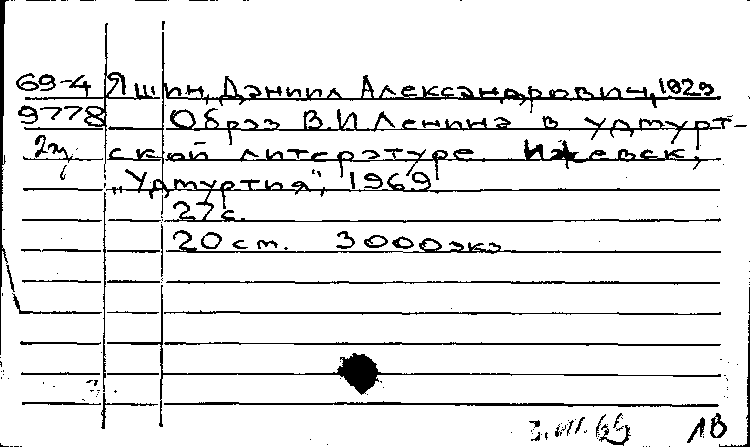 69-4 Яшин, Даниил Александрович, 1929
9778 Образ В.И Ленина в удмурт-
2э. ской литературе. Ижевск,
"Удмуртия", 1969.
27с.
20 см. 3000экз
3.VII.69 1В